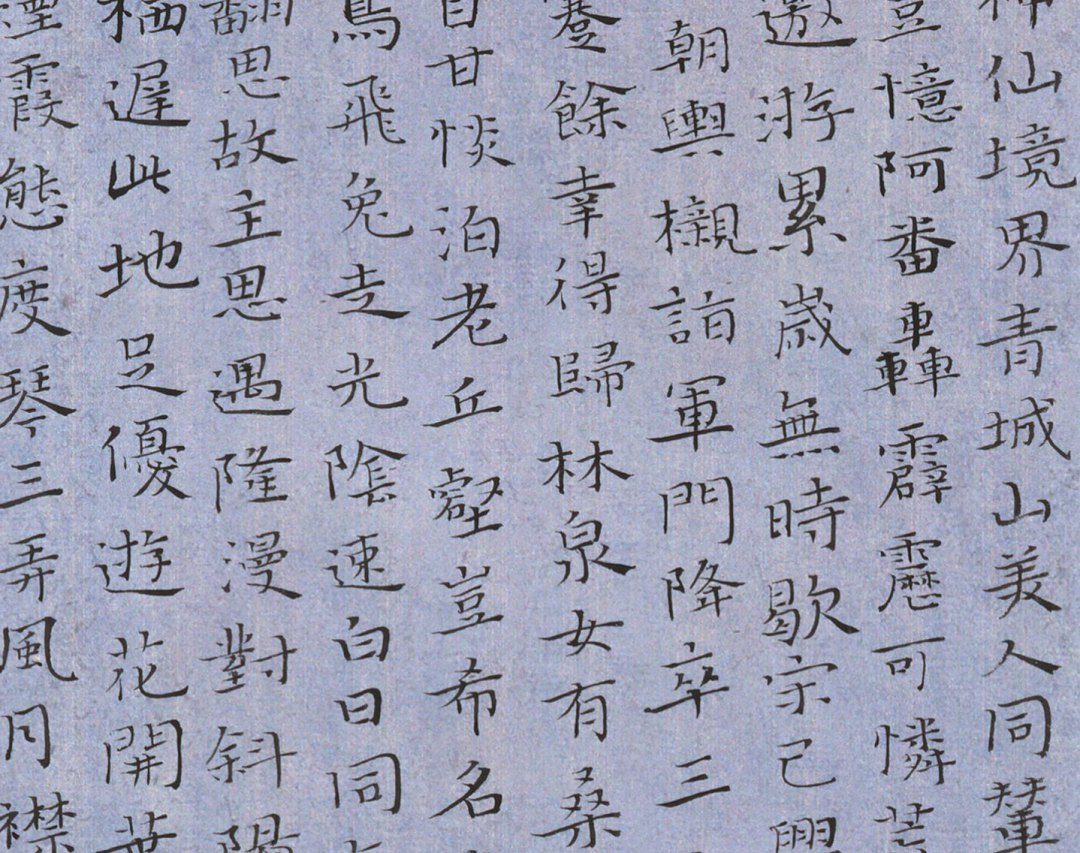 神仙境界青城山美人同輦
豈憶阿番轟霹靂可憐芸
遨游累歲無時歇宗己
朝輿櫬詣軍門降卒三
蹇餘幸得歸林泉女有桑
自甘惔泊老丘壑豈希名
烏飛兔走光陰速白日同
翻思故主思遇隆漫對斜陽
栖遲此地足優遊花開葉
煙霞態度琴三弄風月襟